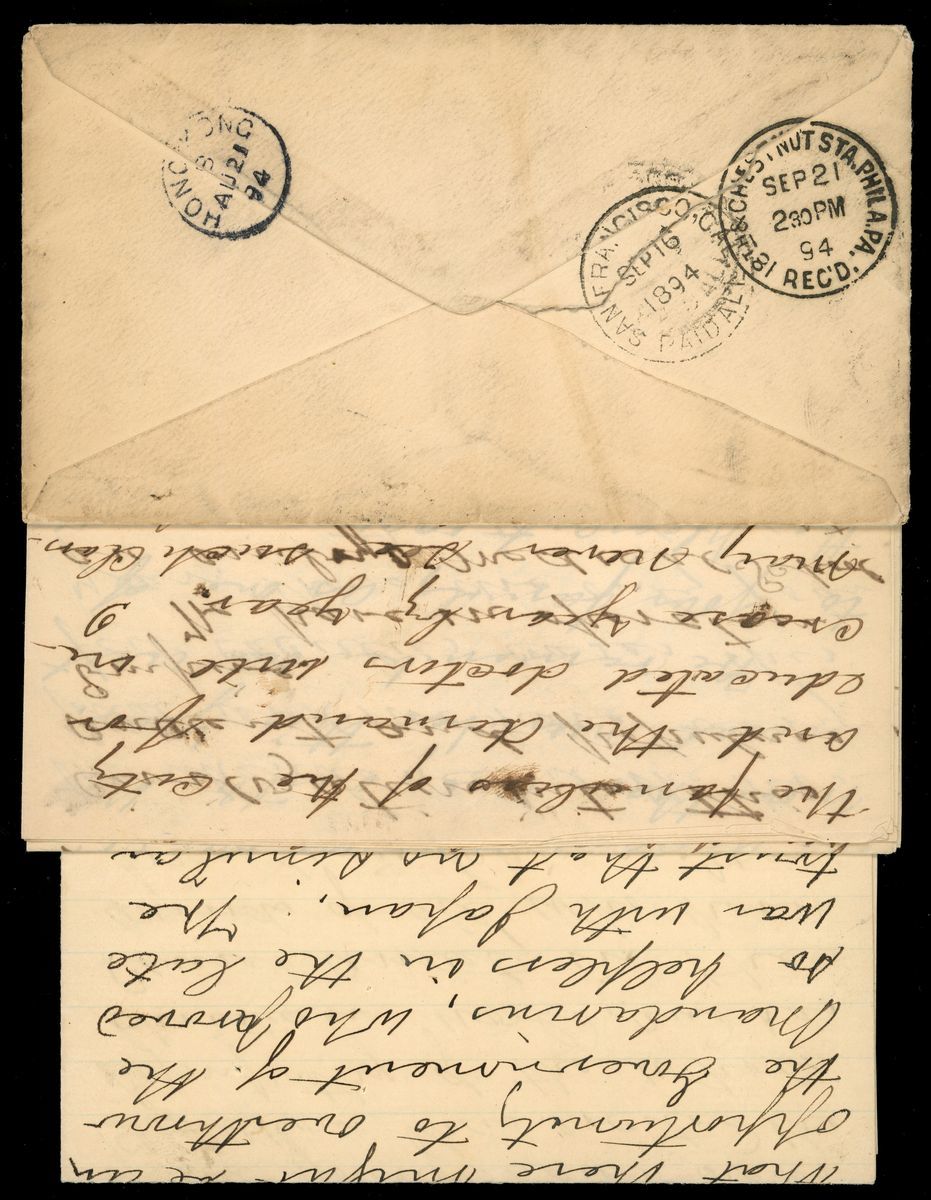 HONG KONG
B
AU 21
94
SAN FRANCISCO, CAL.
SEP 16
1894
PAID ALL
CHESTNUT STA. PHILA. PA.
SEP 21
2 30 PM
94
REC'D.
the families of the city
and the demand for
educated doctors will in-
crease year. I
may never such
that there might be an
opportunity to overthrow
the Government of the
Mandarins, who proved
so helpless in the late
war with Japan. The
that no similar